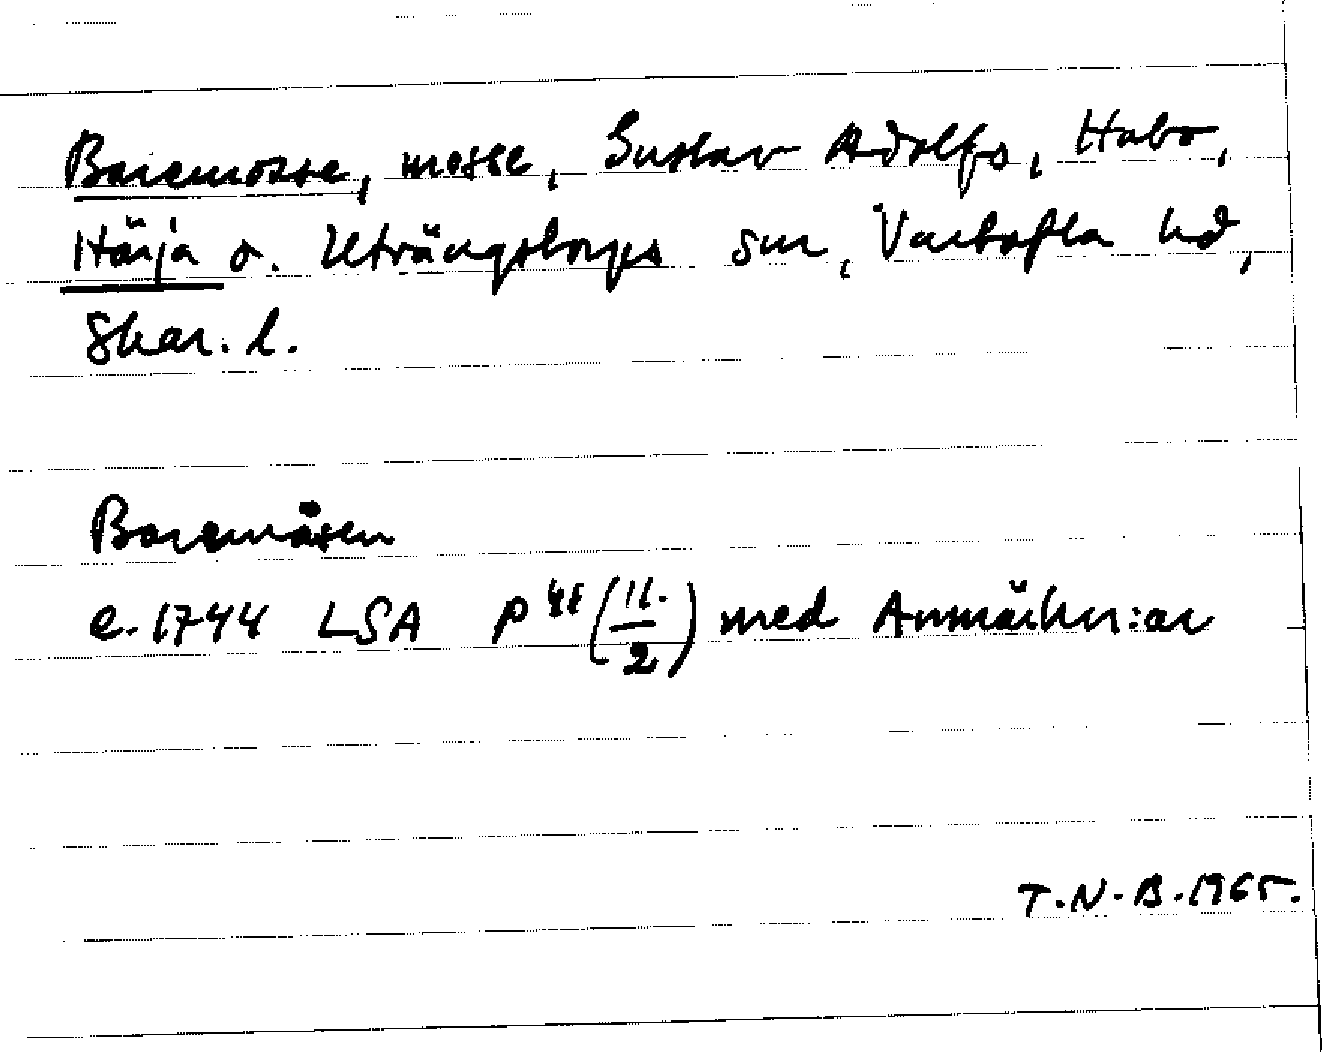 Baremosse, mosse, Gustav Adolfs, Habo,
Härja o. Utvängstorps snr, Vartofta hd,
Skar. l.
Baremåsen
e. 1744 LSA P (11./2) med Anmärkn:ar
T.N.B. 1965.